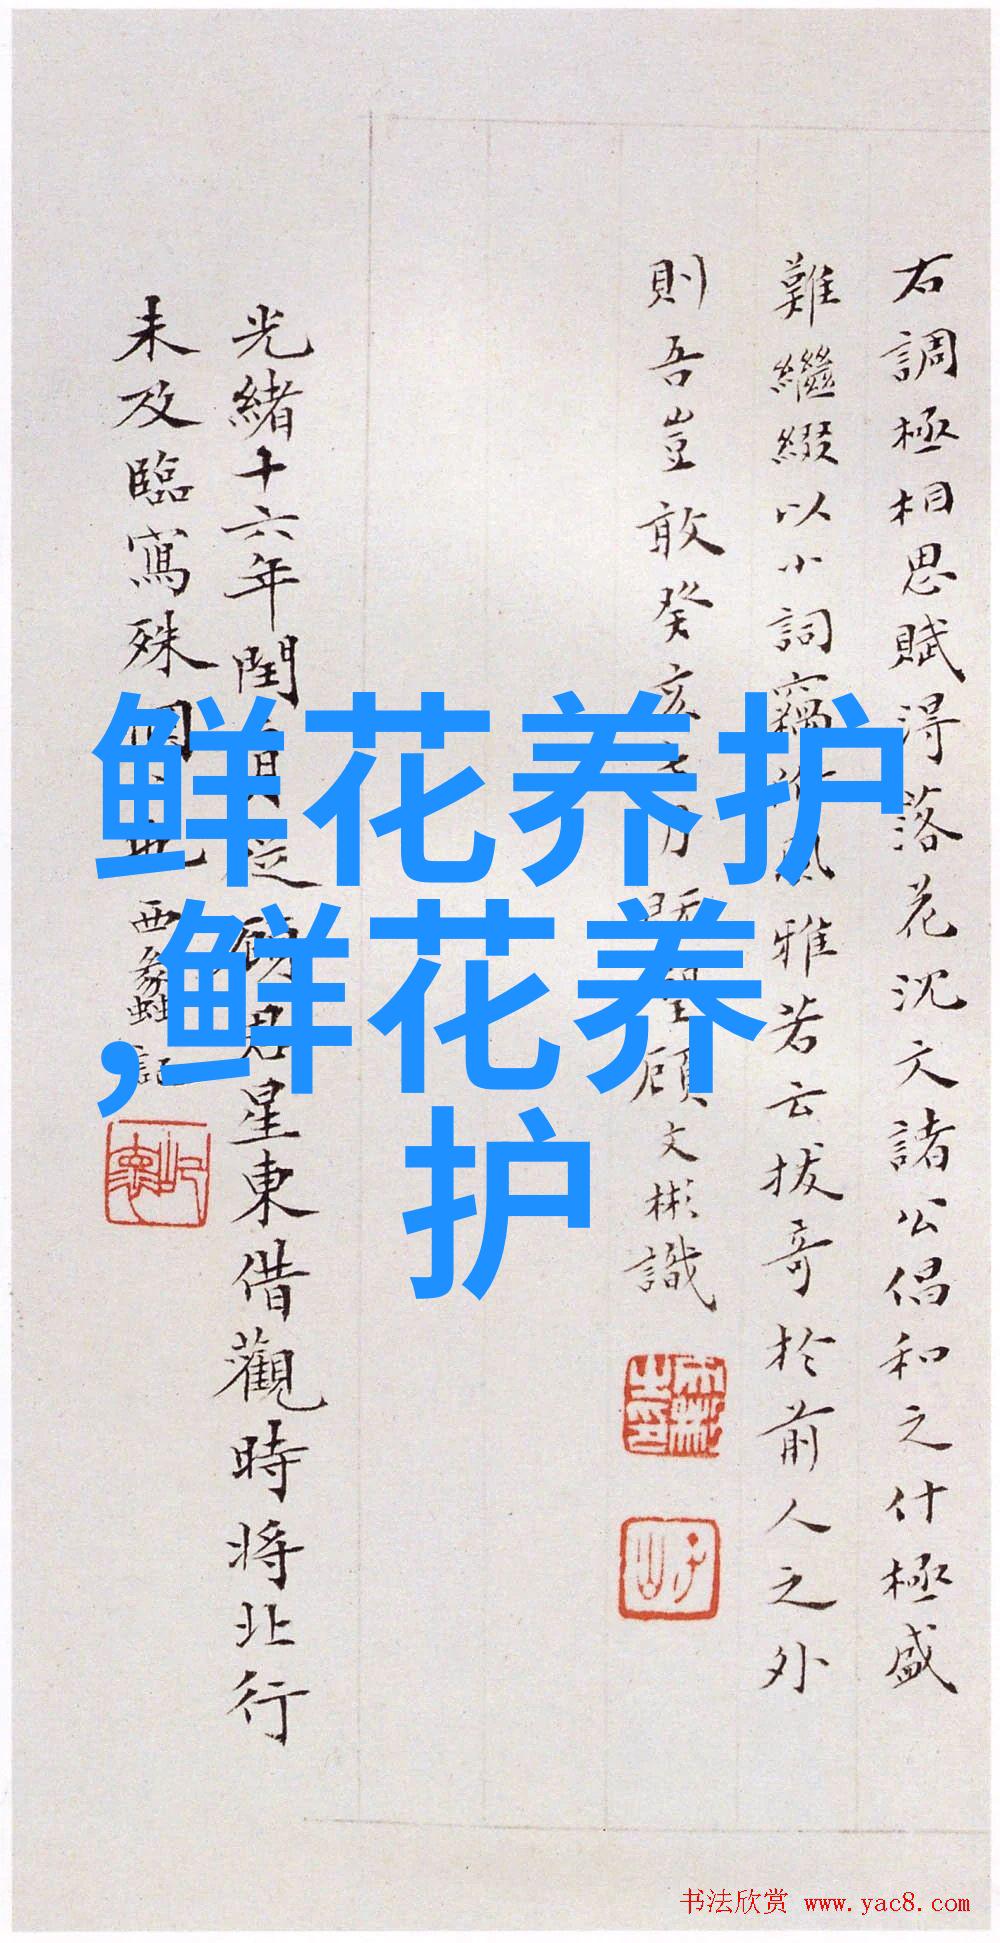 右調極相思賦得落花沈文諸公倡和之什極盛
難繼綴以小詞竊作風雅若云拔奇於前人之外
則吾豈敢癸亥七月顧文彬識
光緒十六年閏二月從顧君星東借觀時將北行
未及臨寫殊悵也西蠡記
鲜花养护
,鲜花养
护
书法欣赏 www.yac8.com